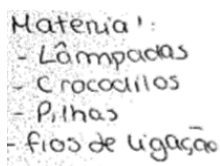 Material:
- Lâmpadas
- Crocodilos
- Pilhas
- fios de ligação